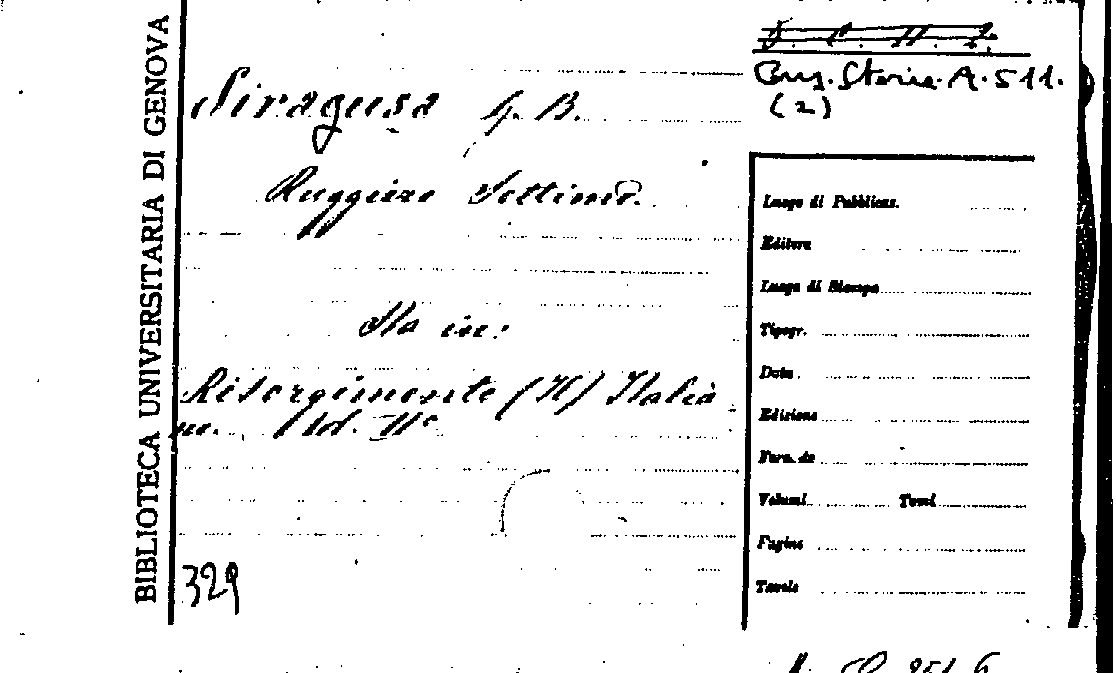 BIBLIOTECA UNIVERSITARIA DI GENOVA
Cons. Storia. A. 511.
(2)
Siragusa G. B.
Ruggiero Settimo.
Sta in:
Risorgimento (Il) Italia
no. Vol. IIº
329
Luogo di Pubblicaz.
Editore
Luogo di Stampa
Tipogr.
Data
Edizione
Form. do
Volumi Tomi
Pagine
Tavole